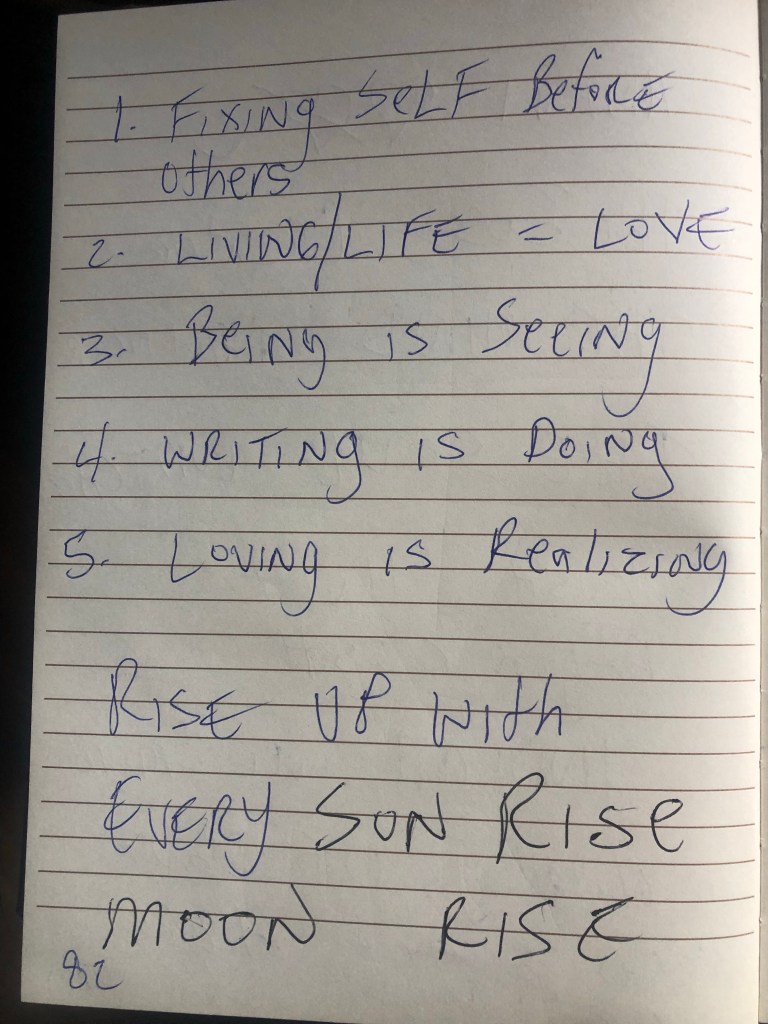 1. FIXING SELF BEFORE
others
2. LIVING/LIFE = LOVE
3. BEING is SEEING
4. WRITING is DOING
5. LOVING is REALIZING
RISE UP WITH
EVERY SUN RISE
MOON RISE
82